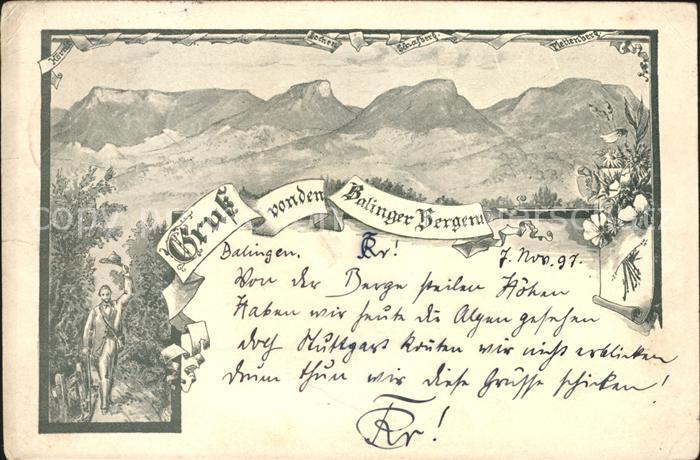 Lochen
Schafberg.
Plettenberg.
Gruß von den Balinger Bergen
Balingen. 7. Nov. 97.
Von der Berge steilen Höhen
Haben wir heute die Alpen gesehen
doch Stuttgart konten wir nicht erblicken
drum thun wir diese Grüsse schicken!